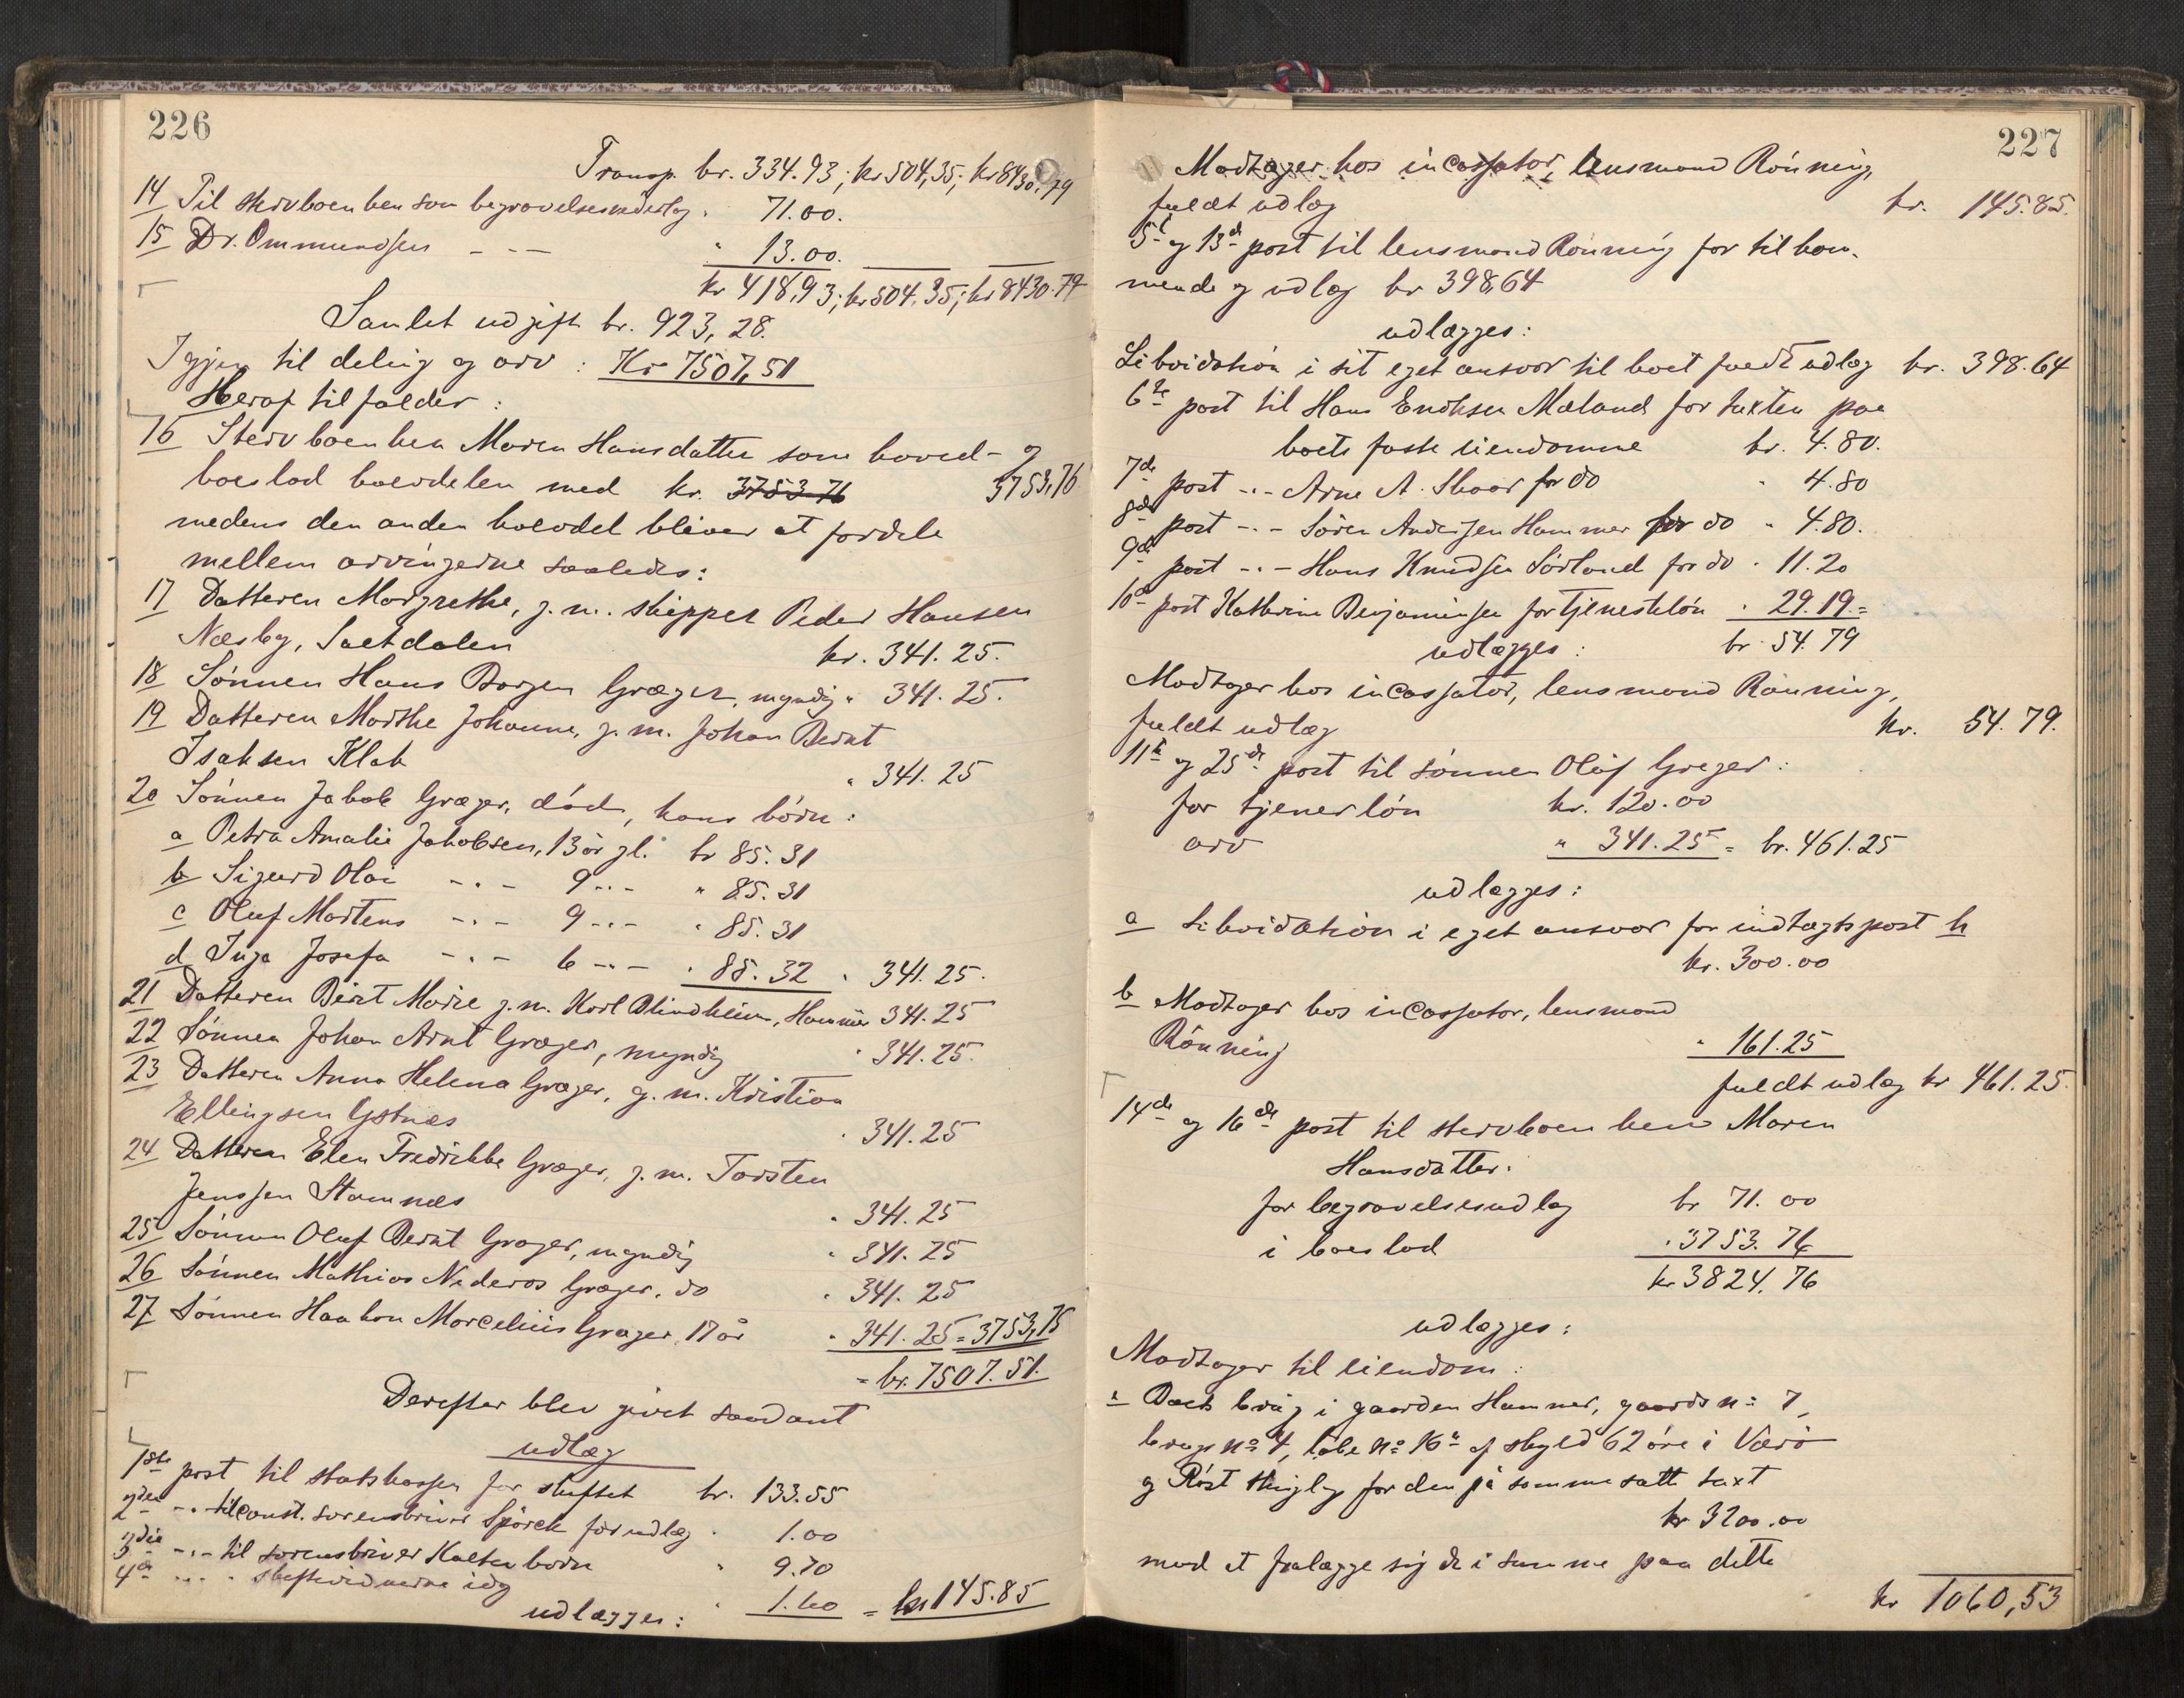 226
Transp. kr. 334.93; kr 504,35; kr 8430.79
14 Til stervboenken som begravelsesudlæg " 71.00.
15 Dr. Ommundsen - - - " 13.00.
kr 418,93; kr 504.35; kr 8430.79
Samlet udgift kr. 923,28.
Igjen til deling og arv: Kr 7507,51
Heraf tilfalder:
16 Stervboenken Maren Hansdatter som hoved- og
boeslod halvdelen med kr. 3753.76 3753,76
medens den anden halvdel bliver at fordele
mellem arvingerne saaledes:
17 Datteren Margrethe, g. m. skipper Peder Hansen
Næsby, Saltdalen kr. 341.25.
18 Sønnen Hans Borgen Græger, myndig " 341.25.
19 Datteren Marthe Johanne, g. m. Johan Bernt
Isaksen Klak " 341.25
20 Sønnen Jakob Græger, død, hans børn:
a Petra Amalie Jakobsen, 13 år gl. kr 85.31
b Sigurd Olai -"- 9 -"- " 85.31
c Oluf Martens -"- 9 -"- " 85.31
d Inga Josefa -"- 6 -"- " 85.32 " 341.25.
21 Datteren Berit Marie g. m. Karl Blindheim, Hammer 341.25
22 Sønnen Johan Arnt Græger, myndig " 341.25.
23 Datteren Anna Helena Græger, g. m. Kristian
Ellingsen " 341.25
24 Datteren Elen Fredrikke Græger, g. m. Torsten
Jenssen Stamnæs " 341.25
25 Sønnen Oluf Bernt Græger, myndig " 341.25
26 Sønnen Mathias Nideros Græger, do " 341.25
27 Sønnen Haakon Marcelius Græger, 17 år " 341.25 = 3753,75
= kr. 7507.51.
Derefter blev givet saadant
udlæg
1ste post til statskassen for skiftet kr. 133.55
2den -"- til const. sorenskriver Spörck for udlæg " 1.00
3die -"- til sorenskriver Kaltenborn " 9.70
4de -"- " skiftevidnerne idg " 1.60 = kr 145.85
udlægges:
227
Modtager hos incassator, lensmand Rønning,
fuldt udlæg kr. 145.85.
5te og 13de post til lensmand Rønning for tilkom-
mende og udlæg kr 398,64
udlægges:
Likvidation i sit eget ansvar til boet fuldt udlæg kr. 398.64
6te post til Hans Eriksen Mæland for taxten paa
boets faste eiendomme kr. 4.80.
7de post -"- Arne A. Skaar for do " 4.80
8de post -"- Søren Andersen Hammer for do " 4.80.
9de post -"- Hans Knudsen Sørland for do " 11.20
10de post Kathrine Benjaminsen for tjenesteløn " 29.19 =
udlægges: kr 54.79
Modtager hos incassator, lensmand Rønning,
fuldt udlæg kr. 54.79.
11te og 25de post til sønnen Oluf Greger:
for tjenerløn kr. 120.00
arv " 341.25 = kr. 461.25
udlægges:
a Likvidation i eget ansvar for indtægtspost h
kr. 300.00
b Modtager hos incassator, lensmand
Rønning " 161.25
fuldt udlæg kr 461.25
14de og 16de post til stervboenken Maren
Hansdatter:
for begravelsesudlæg kr 71.00
i boeslod " 3753.76
kr 3824.76
udlægges:
Modtager til eiendom:
a Boets brug i gaarden Hammer, gaards no 7,
brugs no 4, løbe no 16a af skyld 62 øre i Værø
og Røst thinglag for den på samme satte taxt
kr 3200.00
mod at fralægge sig de i samme paa dette
kr 1060,53